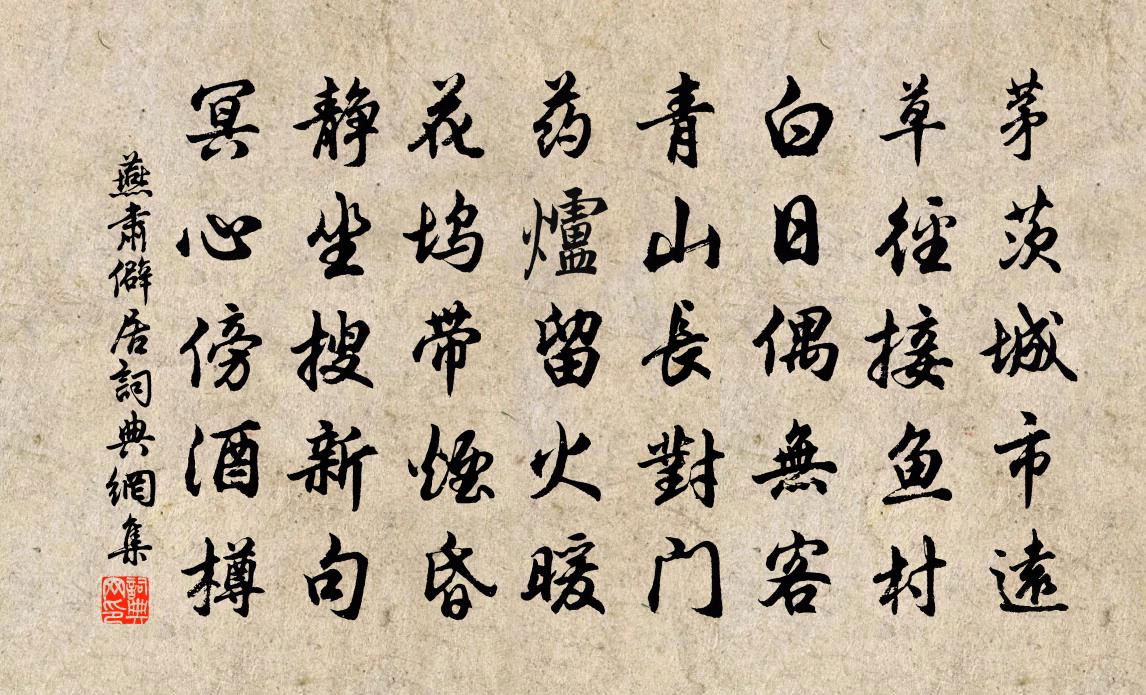 茅茨城市遠
草徑接魚村
白日偶無客
青山長對门
药爐留火暖
花坞带煙昏
静坐搜新句
冥心傍酒樽
燕肅僻居詞典網集
詞典网印